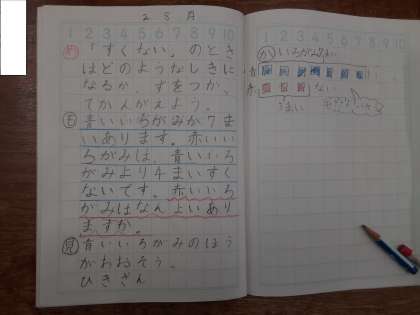 1 2 3 4 5 6 7 8 9 10
2 5 月
め 「すくない」のとき
はどのようなしきに
なるか、ずをつかっ
てかんがえよう。
も 青いいろがみが7ま
いあります。赤いい
ろがみは、青いいろ
がみより4まいすく
ないです。赤いいろ
がみはなんまいあり
ますか。
見 青いいろがみのほう
がおおそう。
ひきざん
1 2 3 4 5 6 7 8 9 10
いろがみ
青
赤
ない
まい